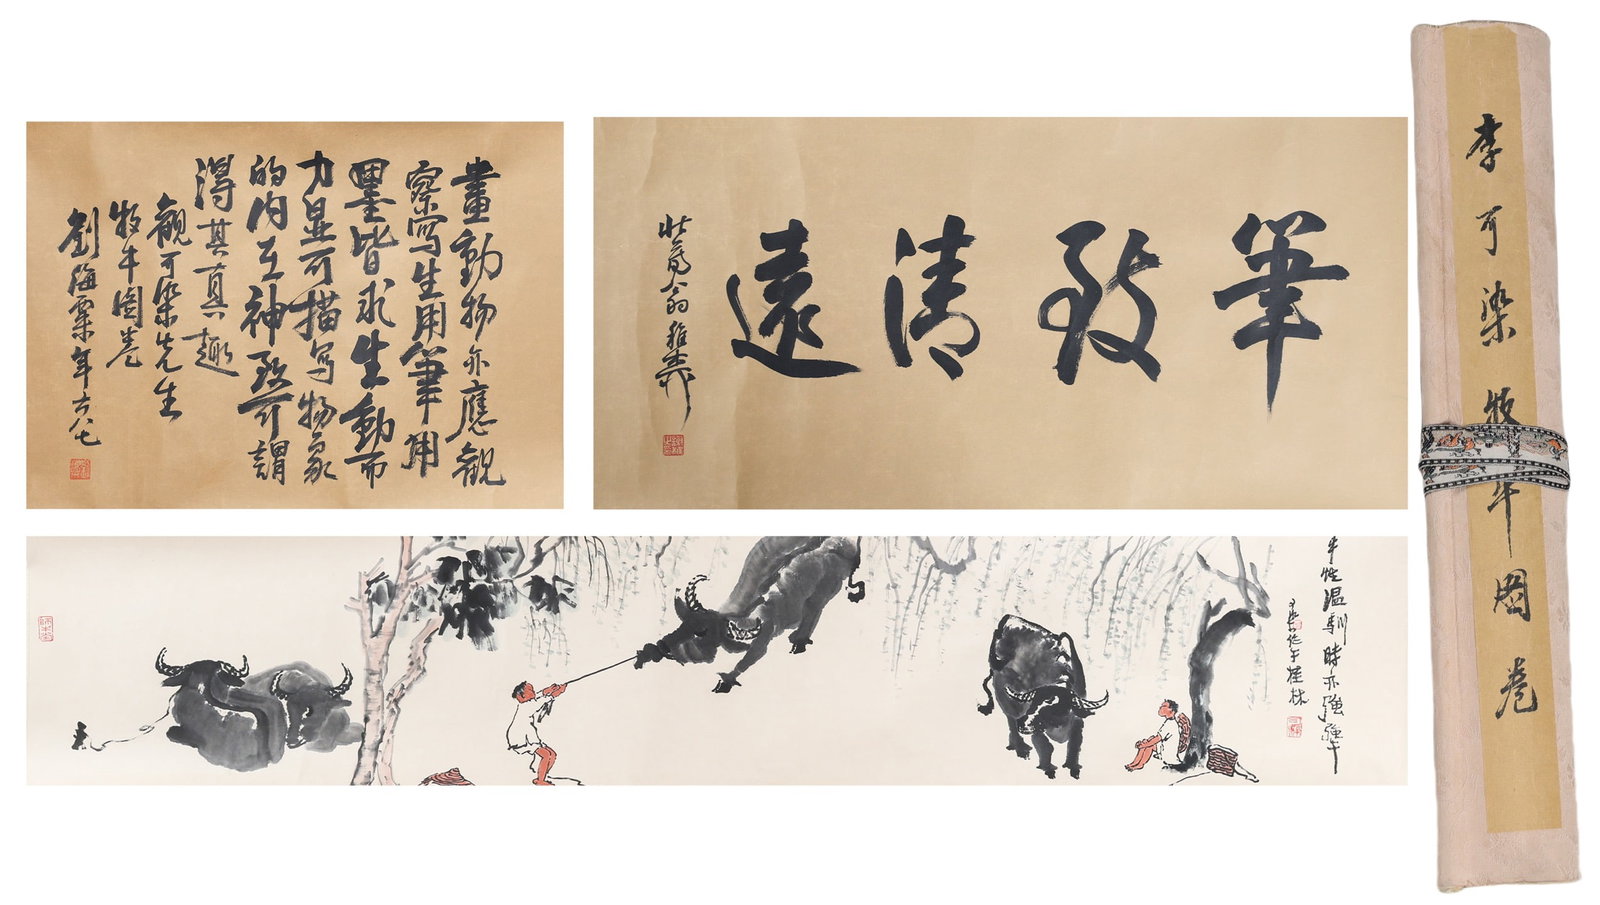 李可染牧牛圖卷
筆致清遠
壯暮翁稚柳
畫動物亦應觀
察寫生用筆用
墨皆求生動而
力显可描写物象
的内在神致可謂
得其真趣
觀可染先生
牧牛圖卷
劉海粟年六八七
牛性温馴時亦強犟
可染作于桂林
師牛堂